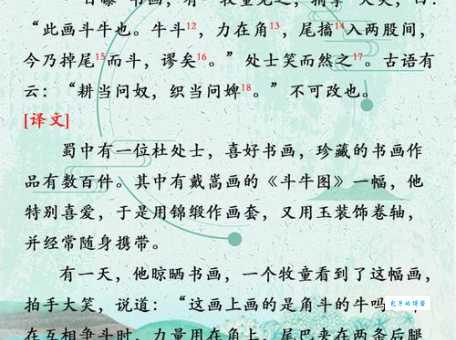 日曝书画,有一牧童见之,拊掌大笑,曰:
“此画斗牛也。牛斗12,力在角13,尾搐14入两股间,
今乃掉尾15而斗,谬矣16。”处士笑而然之17。古语有
云:“耕当问奴,织当问婢18。”不可改也。
[译文]
蜀中有一位杜处士,喜好书画,珍藏的书画作
品有数百件。其中有戴嵩画的《斗牛图》一幅,他
特别喜爱,于是用锦缎作画套,又用玉装饰卷轴,
并经常随身携带。
有一天,他晾晒书画,一个牧童看到了这幅画,
拍手大笑,说道:“这画上画的是角斗的牛吗
在互相争斗时,力量用在角上,尾巴夹在两条后腿